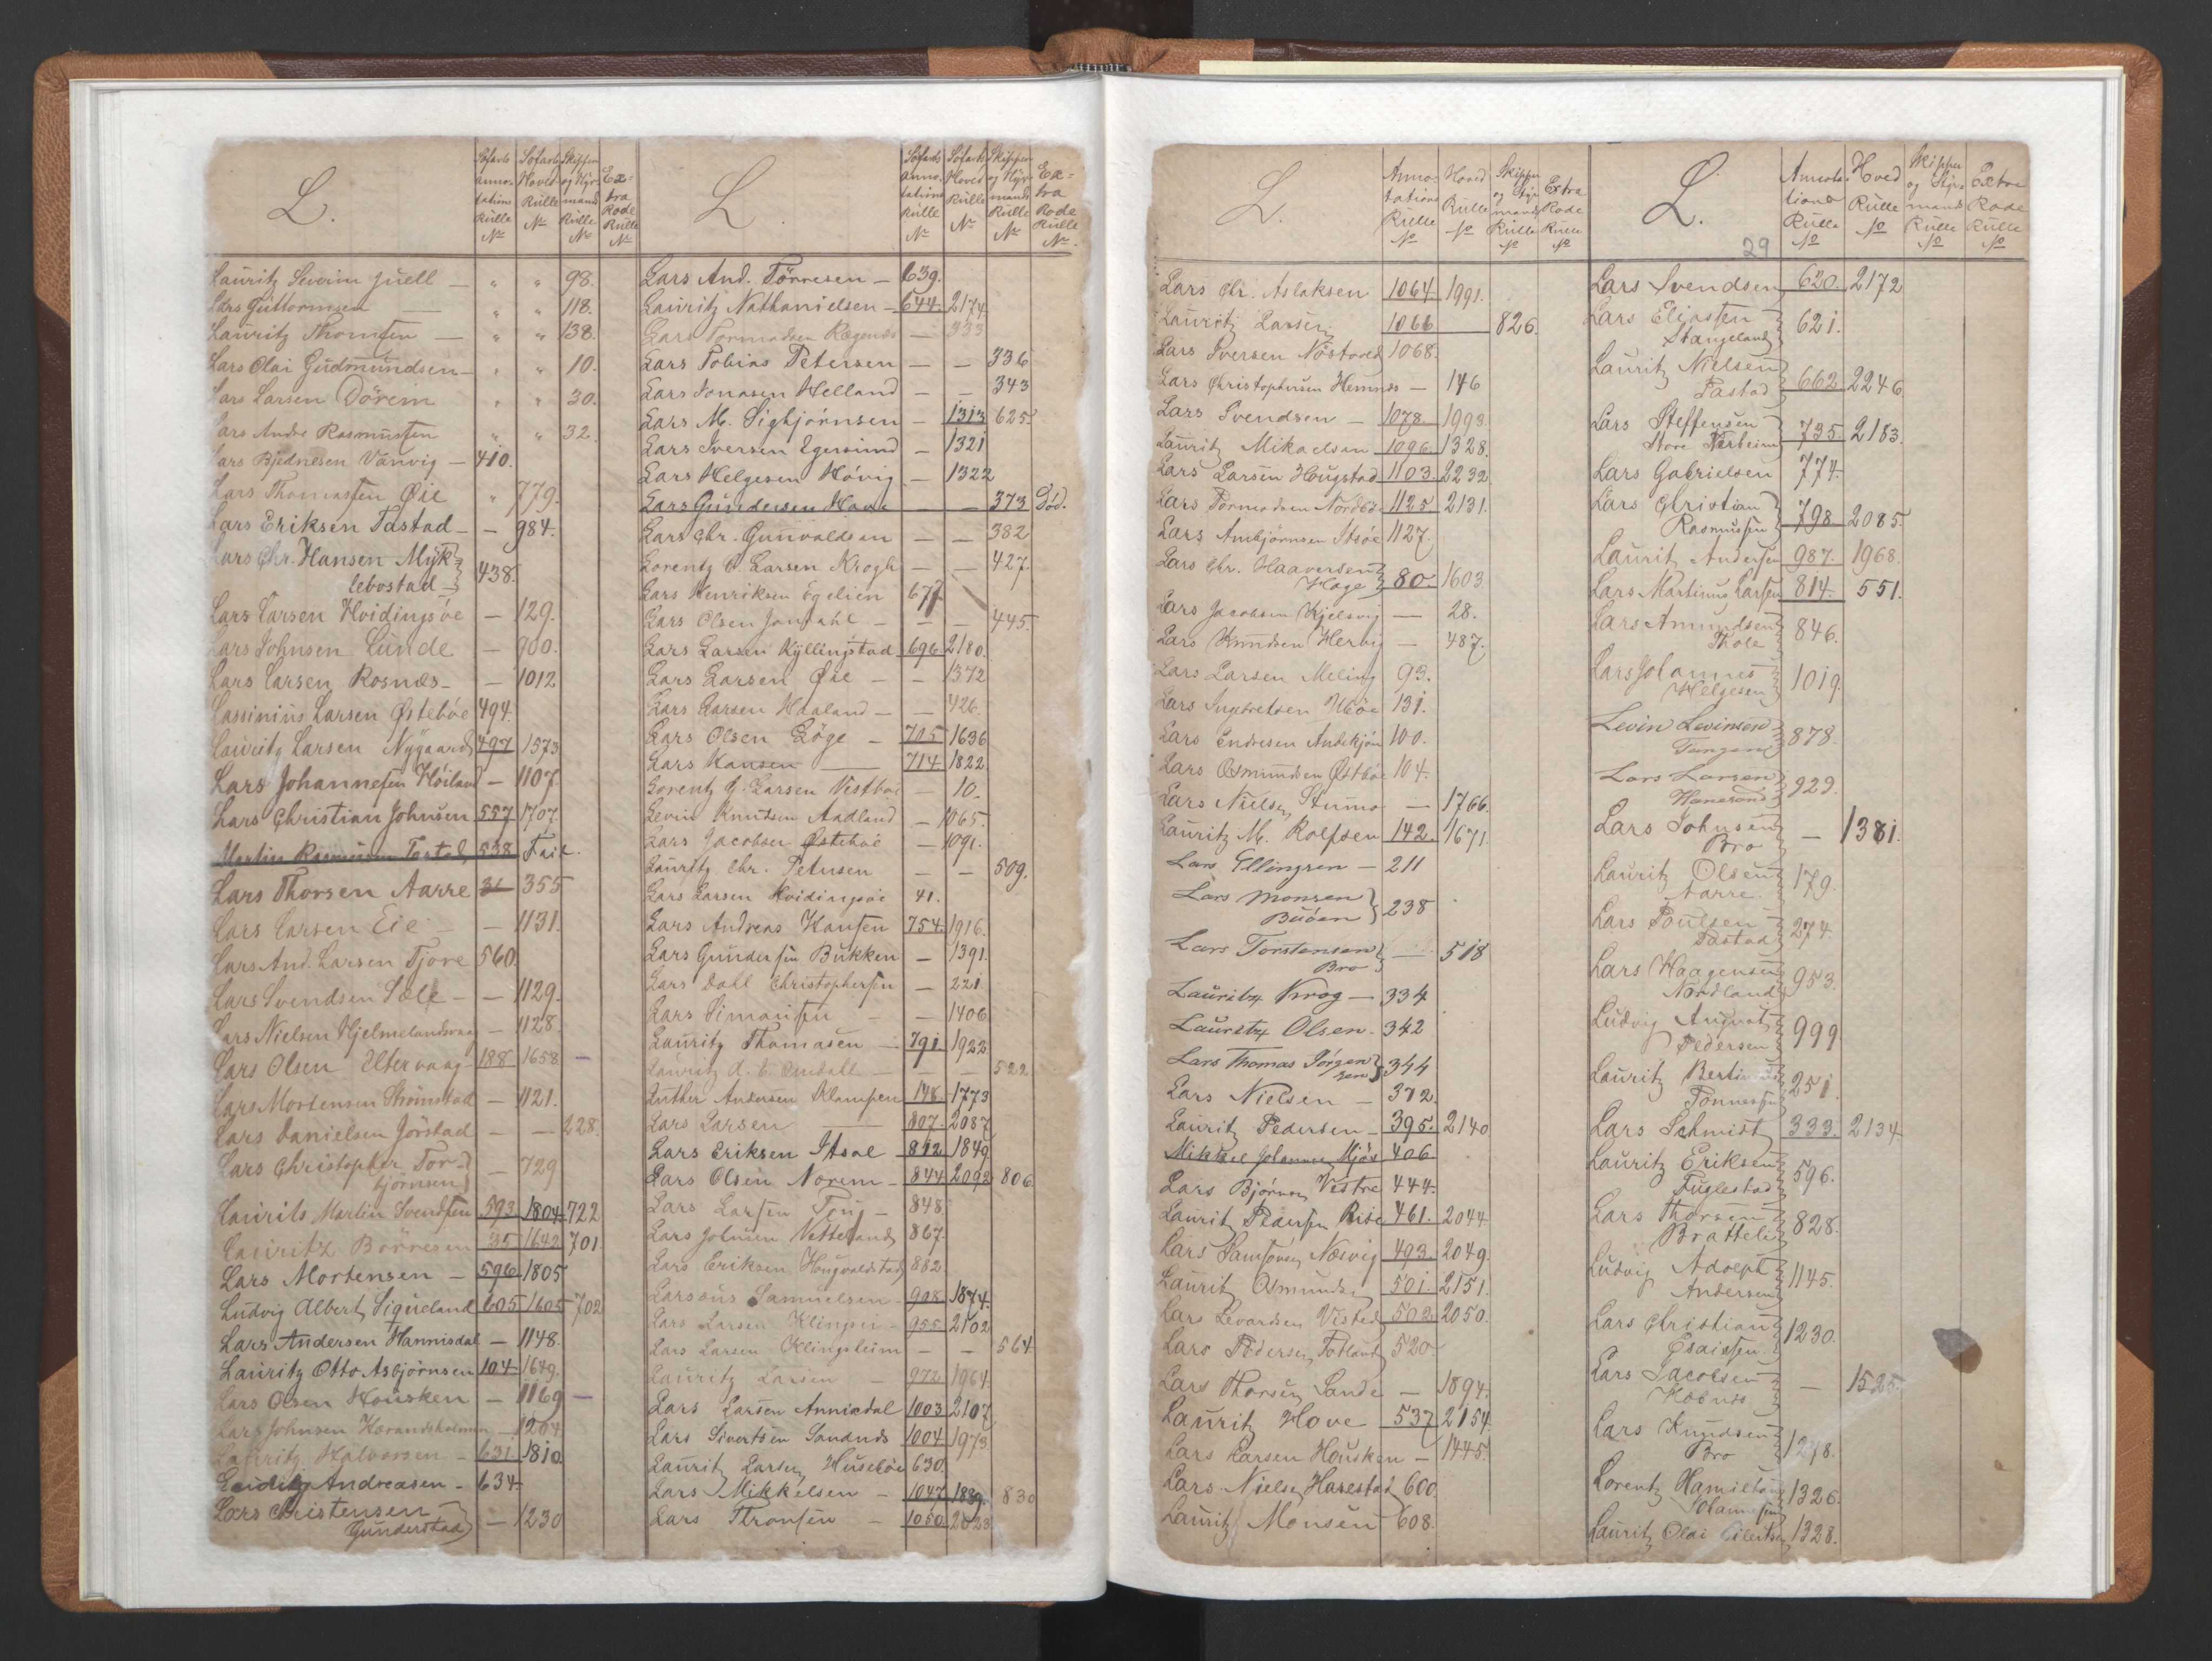 L.
Søfarts Annotations Rulle No
Søfarts Hoved Rulle No
Skipper og Styrmands Rulle No
Extra Rode Rulle No
Lauritz Severin Juell — " " 98.
Lars Guttormsen — " " 118.
Lauritz Thomsen — " " 138.
Lars Olai Gudmundsen — " " 10.
Lars Larsen Dörein " " 30.
Lars Andre Rasmussen " " 32.
Lars Bjednesen Vanvig — 410.
Lars Thomassen Øie " 779.
Lars Eriksen Tastad — — 984.
Lars Chr. Hansen Myk=
lebostad — 438.
Lars Larsen Hvidingsøe — 129.
Lars Johnsen Lunde — 900.
Lars Larsen Rosnæs — — 1012
Lassinius Larsen Østebøe 494.
Lauritz Larsen Nygaard 497 1573
Lars Johannesen Høiland — 1107.
Lars Christian Johnsen 557 1707.
Martin Rasmussen Tastad 538 Feil.
Lars Thorsen Aarre 31 355
Lars Larsen Eie — 1131.
Lars And. Larsen Tjore 560.
Lars Svendsen Sæle — — 1129.
Lars Nielsen Hjelmelandsvaag — 1128.
Lars Olsen Eltervaag 188 1658. —
Lars Mortensen Strømstad — 1121.
Lars Danielsen Jørstad — — 228.
Lars Christopher Tor-
bjørnsen — 729
Laurits Martin Svendsen 593 1804 722
Lauritz Börresen 35 1642 701.
Lars Mortensen — 596 1805
Ludvig Albert Sigueland 605 1605 702
Lars Andersen Hannisdal — 1148.
Lauritz Otto Asbjørnsen 104 1649.
Lars Olsen Housken — 1169 —
Lars Johnsen — 1204
Lauritz Halvorsen — 631. 1810
Ludvig Andreasen — 634
Lars Christensen
Gunderstad — 1230
L.
Søfarts Annotations Rulle No
Søfarts Hoved Rulle No
Skipper og Styrmands Rulle No
Extra Rode Rulle No.
Lars And. Törresen — 639.
Lauritz Nathanielsen — 644 2174
Lars Tormodsen — 333
Lars Tobias Petersen — — 336
Lars Jonasen Helland — — 343
Lars M. Sigbjørnsen — 1313 625.
Lars Iversen Egersund — 1321
Lars Helgesen Høvig — 1322
Lars Gundersen Hove — — 373 Død.
Lars Chr. Gunvaldsen — — 382
Lorentz C. Larsen Krogh — — 427.
Lars Henriksen Egelien 677
Lars Olsen Jondahl — — — 445.
Lars Larsen Kyllingstad 696 2180.
Lars Larsen Øie — — 1372
Lars Larsen Haaland — — 426.
Lars Olsen Løge — 705 1636
Lars Hansen — 714 1822
Lorentz G. Larsen Vestbøe — 10.
Levin Knudsen Aadland — 1065.
Lars Jacobsen Østebøe — 1091.
Lauritz Chr. Petersen — — 509.
Lars Larsen Hvidingsøe 41.
Lars Andreas Hansen 754 1916.
Lars Gundersen Bukken — 1391.
Lars Dahl Christophersen — 221
Lars Simonsen — — 1406
Lauritz Thomasen — 791 1922
Lauritz A. C. Omdahl — — — 522
Luther Andersen Klampen 148 1773
Lars Larsen — 807. 2087
Lars Eriksen Itsøe — 812 1849
Lars Olsen Norem — 844 2092 806
Lars Larsen Teig — 848.
Lars Johnsen Netteland 867.
Lars Eriksen Hougvaldstad 882
Larsæus Samuelsen — 908 1874.
Lars Larsen Klingsei — 955 2102
Lars Larsen Klingsheim — — 564
Lauritz Larsen — 972 1964.
Lars Larsen Anniedal 1003 2107
Lars Sivertsen Sandnes 1004 1973.
Lauritz Larsen Husebøe 630.
Lars Mikkelsen — 1047 1889. 830
Lars Thronsen — 1050 2023
L.
Annotations Rulle No
Hoved Rulle No
Skipper og Styrmands Rulle No
Extra Rode Rulle No
Lars Chr. Aslaksen 1064 1991.
Lauritz Larsen 1066 826.
Lars Iversen Nöstvold 1068.
Lars Christophersen Hemnes — 146
Lars Svendsen — 1078. 1993.
Lauritz Mikaelsen — 1096. 1328.
Lars Larsen Hougstad 1103 2232
Lars Tormodsen Nordbø 1125 2131.
Lars Ambjørnsen Itsøe 1127.
Lars Chr. Haaversen
Hage 80 1603
Lars Jacobsen Kjelsvig — 28.
Lars Knudsen Hervig — 487.
Lars Larsen Meling 93.
Lars Ingebretsen Utbøe 131.
Lars Endresen Andskjøn 100.
Lars Osmundsen Østbøe 104.
Lars Nielsen Stumo — 1766.
Lauritz M. Rolfsen 142. 1671.
Lars Ellingsen — 211
Lars Monsen
Buøen 238
Lars Torstensen
Bro — 518
Lauritz Krog — 334
Lauritz Olsen. 342
Lars Thomas Jörgen
sen 344
Lars Nielsen — 372.
Lauritz Pedersen — 395. 2140
Mikkel Johannes Mjös 406.
Lars Bjørnsen Vestre 444.
Lauritz Pedersen Riise 461. 2044
Lars Samsonsen Næsvig 493. 2049.
Lauritz Osmunds. 501. 2151.
Lars Levardsen Visted 502 2050.
Lars Pedersen Fotland 520.
Lars Thorsen Sande — 1894.
Lauritz Hove — 537 2154
Lars Larsen Housken — 1445.
Lars Nielsen Harestad 600.
Lauritz Monsen 608.
L.
29
Annotations Rulle No
Hoved Rulle No
Skipper og Styrmands Rulle No
Extra Rode Rulle No
Lars Svendsen 620. 2172
Lars Eliassen
Stangeland 621.
Lauritz Nielsen
Tastad 662 2246
Lars Steffensen
Store Nerheim 735 2183.
Lars Gabrielsen 774.
Lars Christian
Rasmussen 798 2085.
Laurit. Andersen 987. 1968.
Lars Martinus Larsen 814. 551.
Lars Amundsen
Thole 846.
Lars Johannes
Helgesen 1019.
Levin Levinsen
Tangen 878.
Lars Larsen
Hanesand 929.
Lars Johnsen
Bro — 1381.
Lauritz Olsen
Aarre. 179.
Lars Poulsen
Tastad 274.
Lars Haagensen
Nordland 953.
Ludvig August
Pedersen 999
Lauritz Bertinius
Tønnessen 251.
Lars Schmidt 333. 2134
Lauritz Eriksen
Fuglestad 596.
Lars Thorsen
Brattelie 828.
Ludvig Adolph
Andersen 1145.
Lars Christian
Esaissen. 1230.
Lars Jacobsen
— 1525.
Lars Knudsen
Bro 1248.
Lorentz Hamilton
Johannesen 1326.
Lauritz Olai Eilertsen 1328.